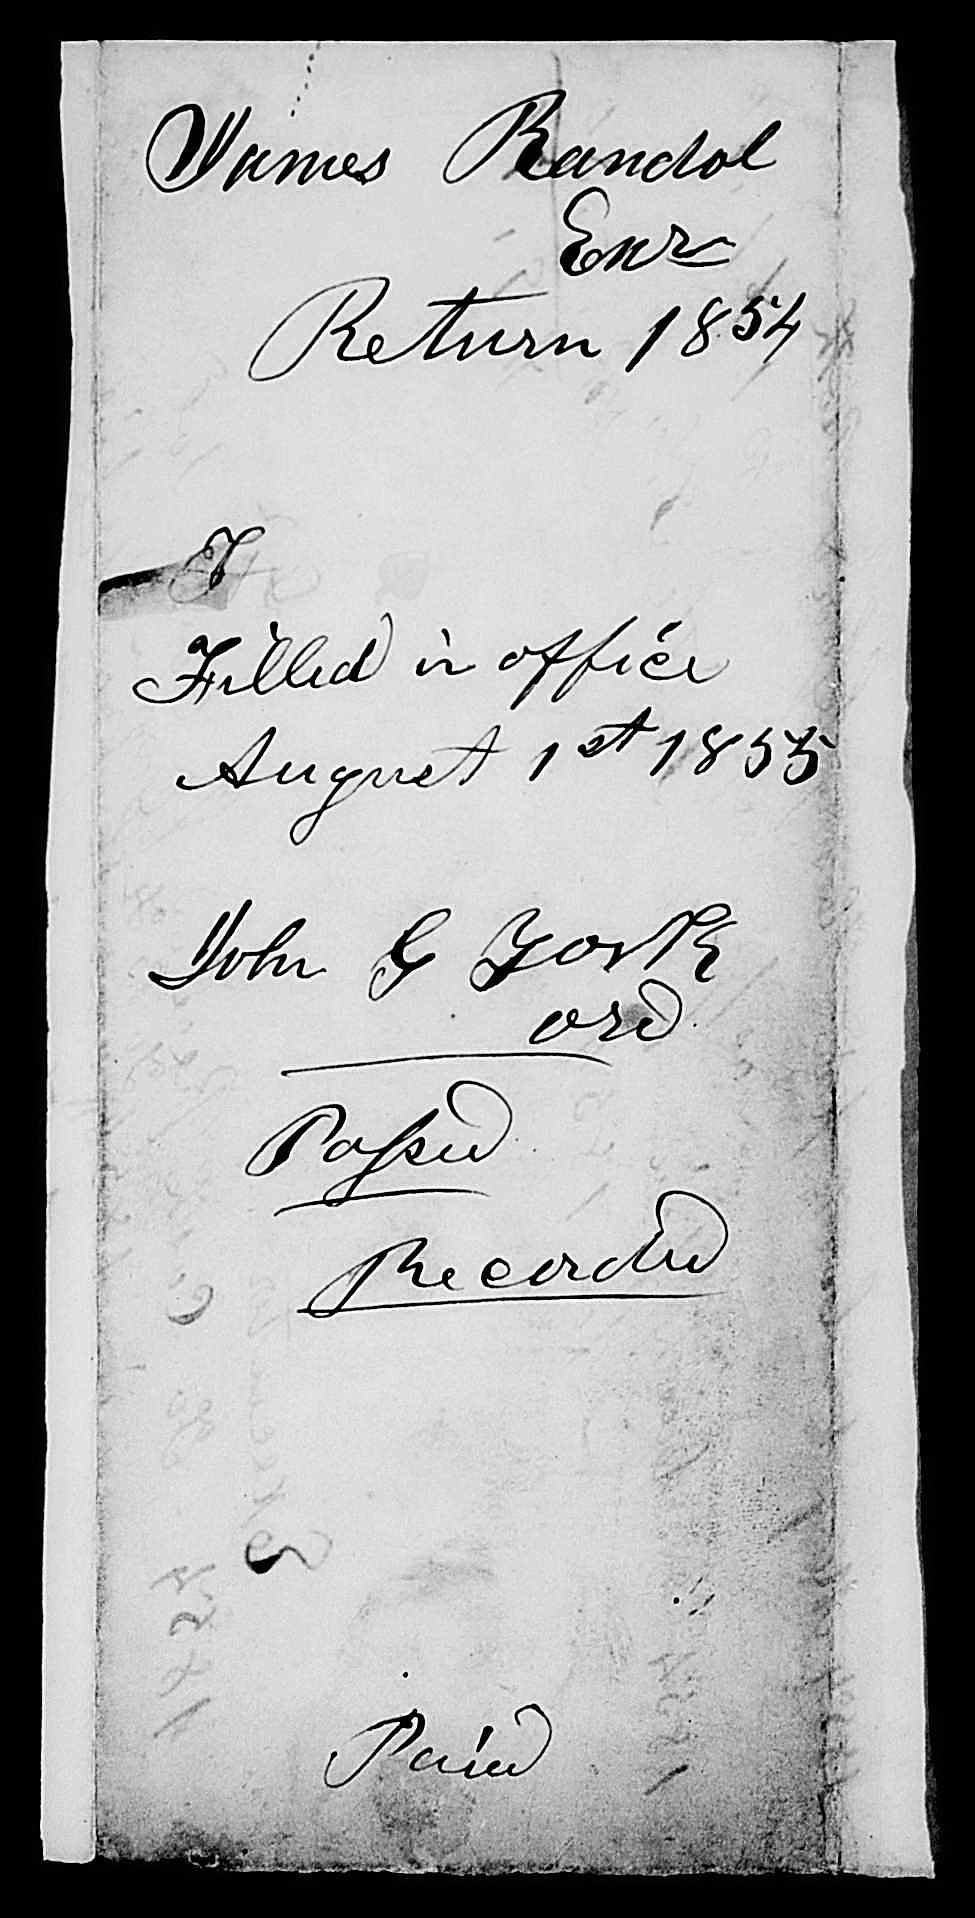 James Randol
Exr
Return 1854
F
Filled in office
August 1st 1855
John G York
ord
Passed
Recorded
Paid